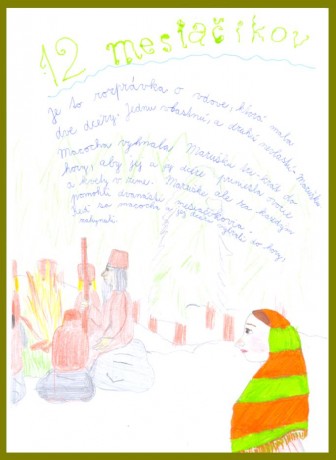 12 mesiačikov
je to rozprávka o vdove, ktorá mala
dve dcéry. Jednu vlastnú a druhú nevlastnú Marišku
Macocha vyhnala Marišku tri-krát do
hory, aby jej a jej dcére priniesla ovocie
a kvety v zime. Mariške ale za každým
pomohli dvanásti mesiačikovia.
Keď sa macocha a jej dcéra vybrali do hory,
zahynuli